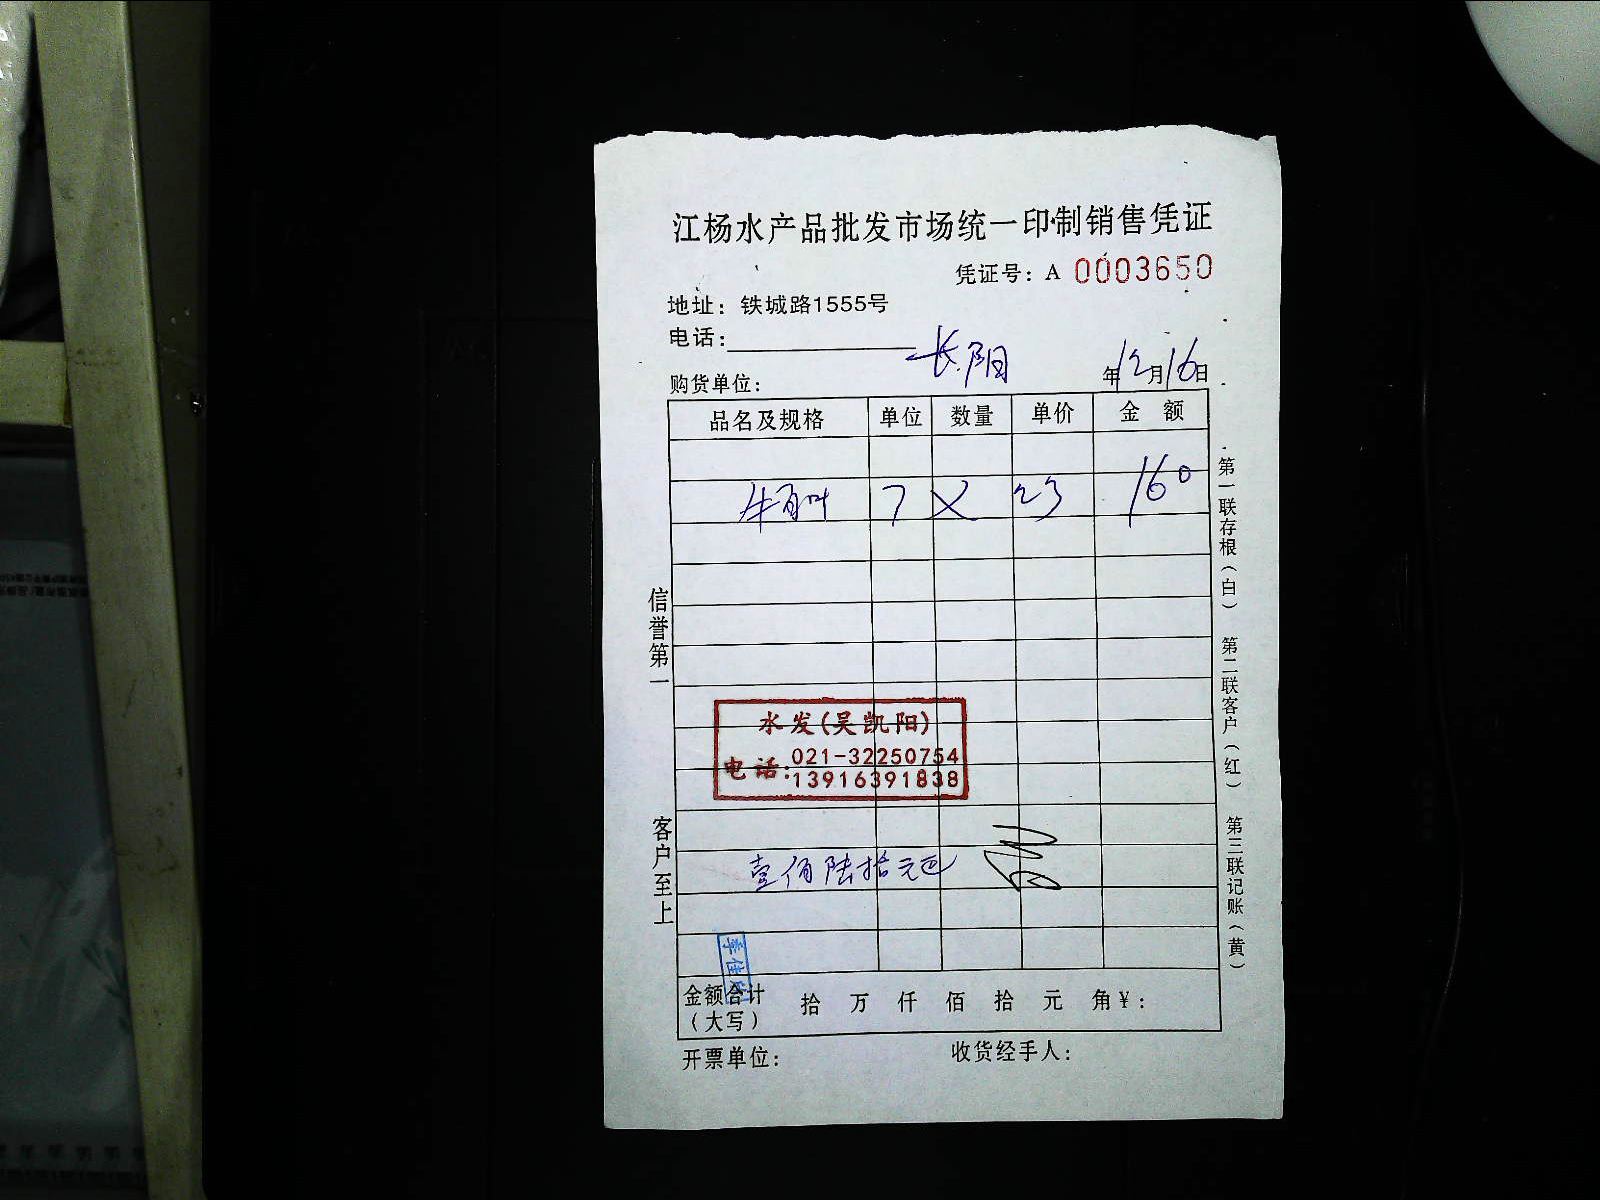 江杨水产品批发市场统一印制销售凭证
凭证号：A 0003650
地址：铁城路1555号
电话：
长阳
购货单位： 年12月16日
品名及规格 单位 数量 单价 金额
牛百叶 7 × 23 160
水发(吴凯阳)
电话：021-32250754
13916391838
壹佰陆拾元
金额合计 拾 万 仟 佰 拾 元 角 ¥：
（大写）
开票单位： 收货经手人：
信誉第一
客户至上
第一联存根（白） 第二联客户（红） 第三联记账（黄）